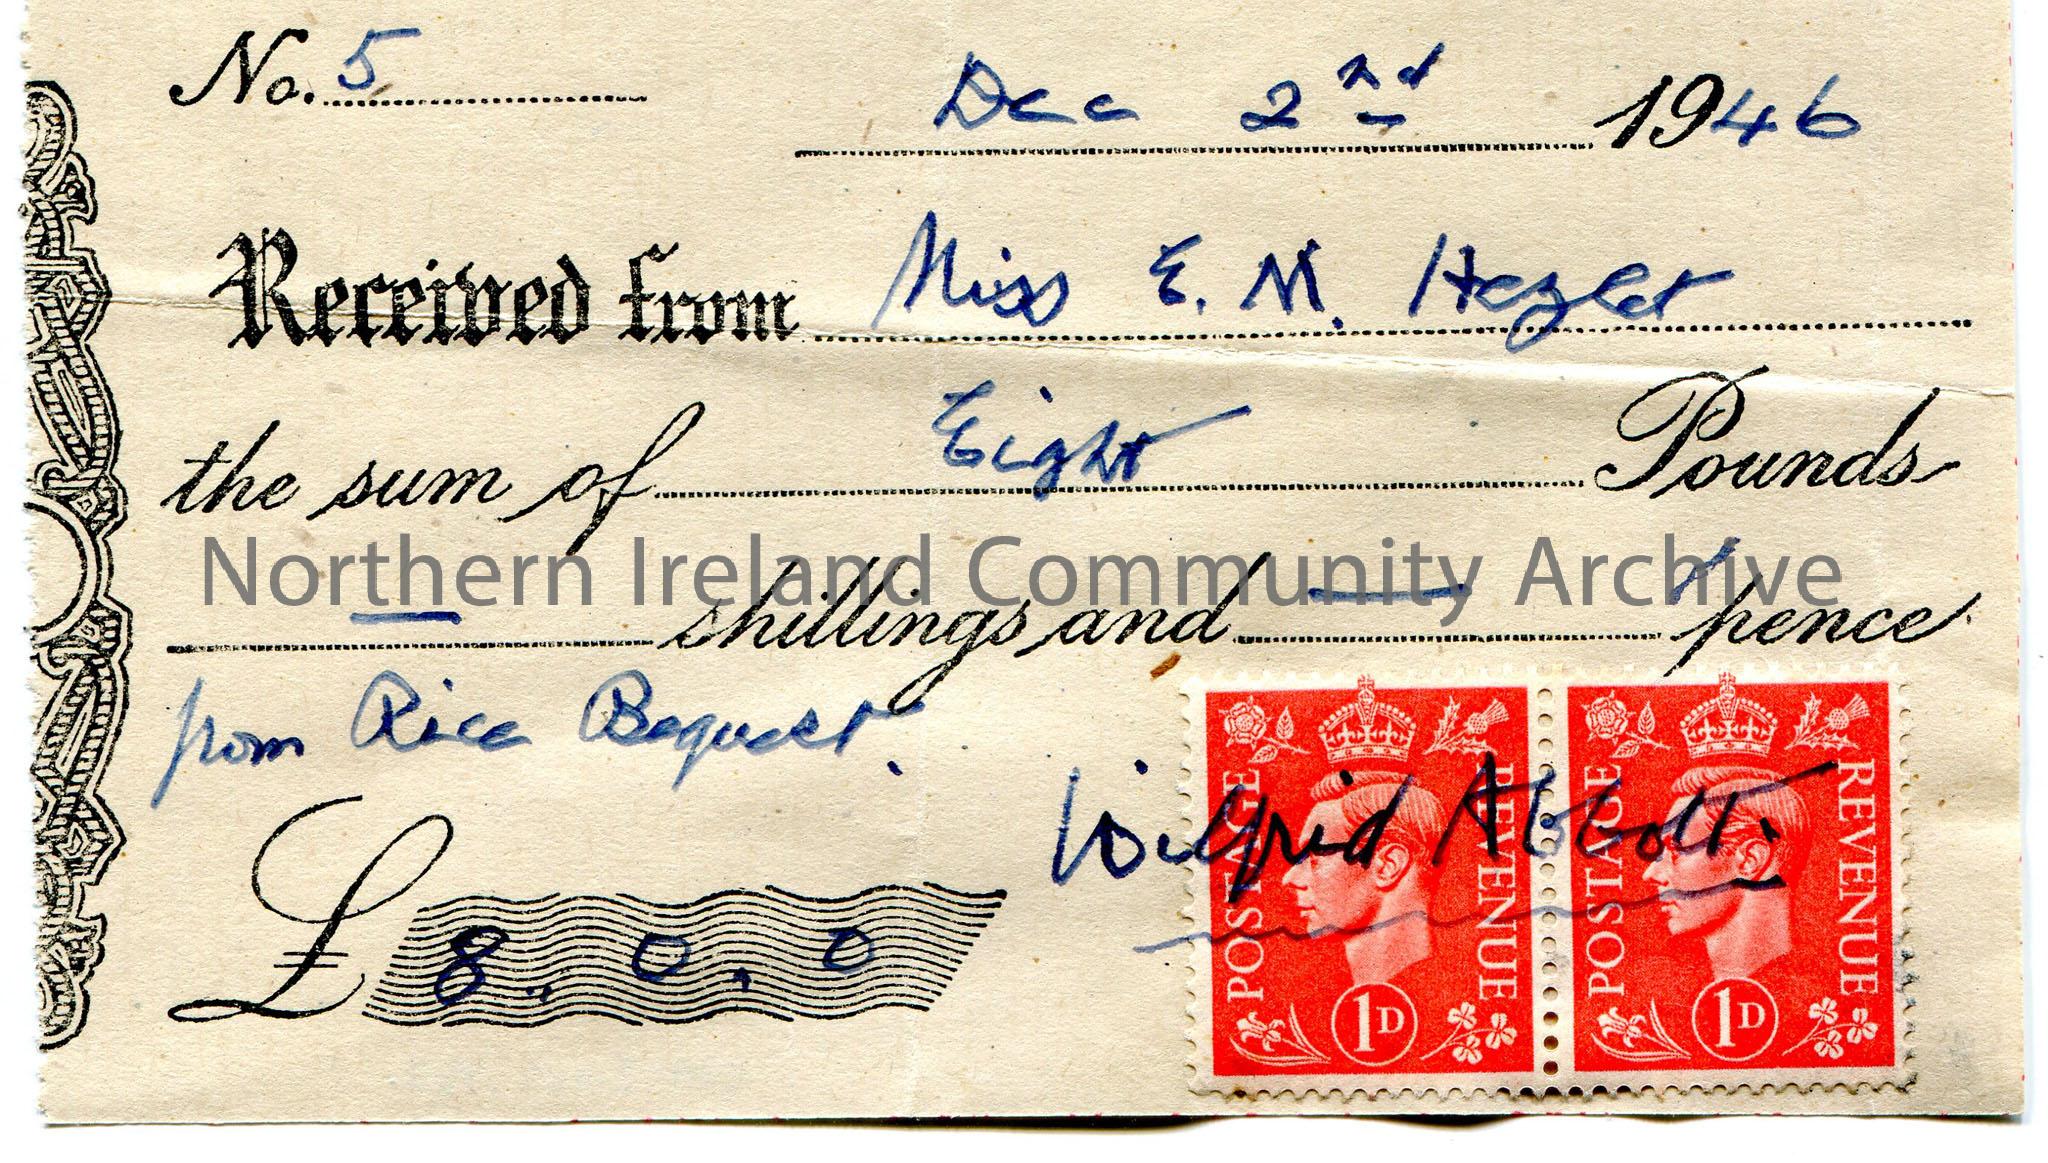 No. 5
Dec 2nd 1946
Received from Miss E. M. Hezlet
the sum of Eight Pounds
Northern Ireland Community Archive
— shillings and — pence
from Rice Bequest.
Wilfrid Abbott.
£ 8. 0. 0
POSTAGE REVENUE 1D
POSTAGE REVENUE 1D